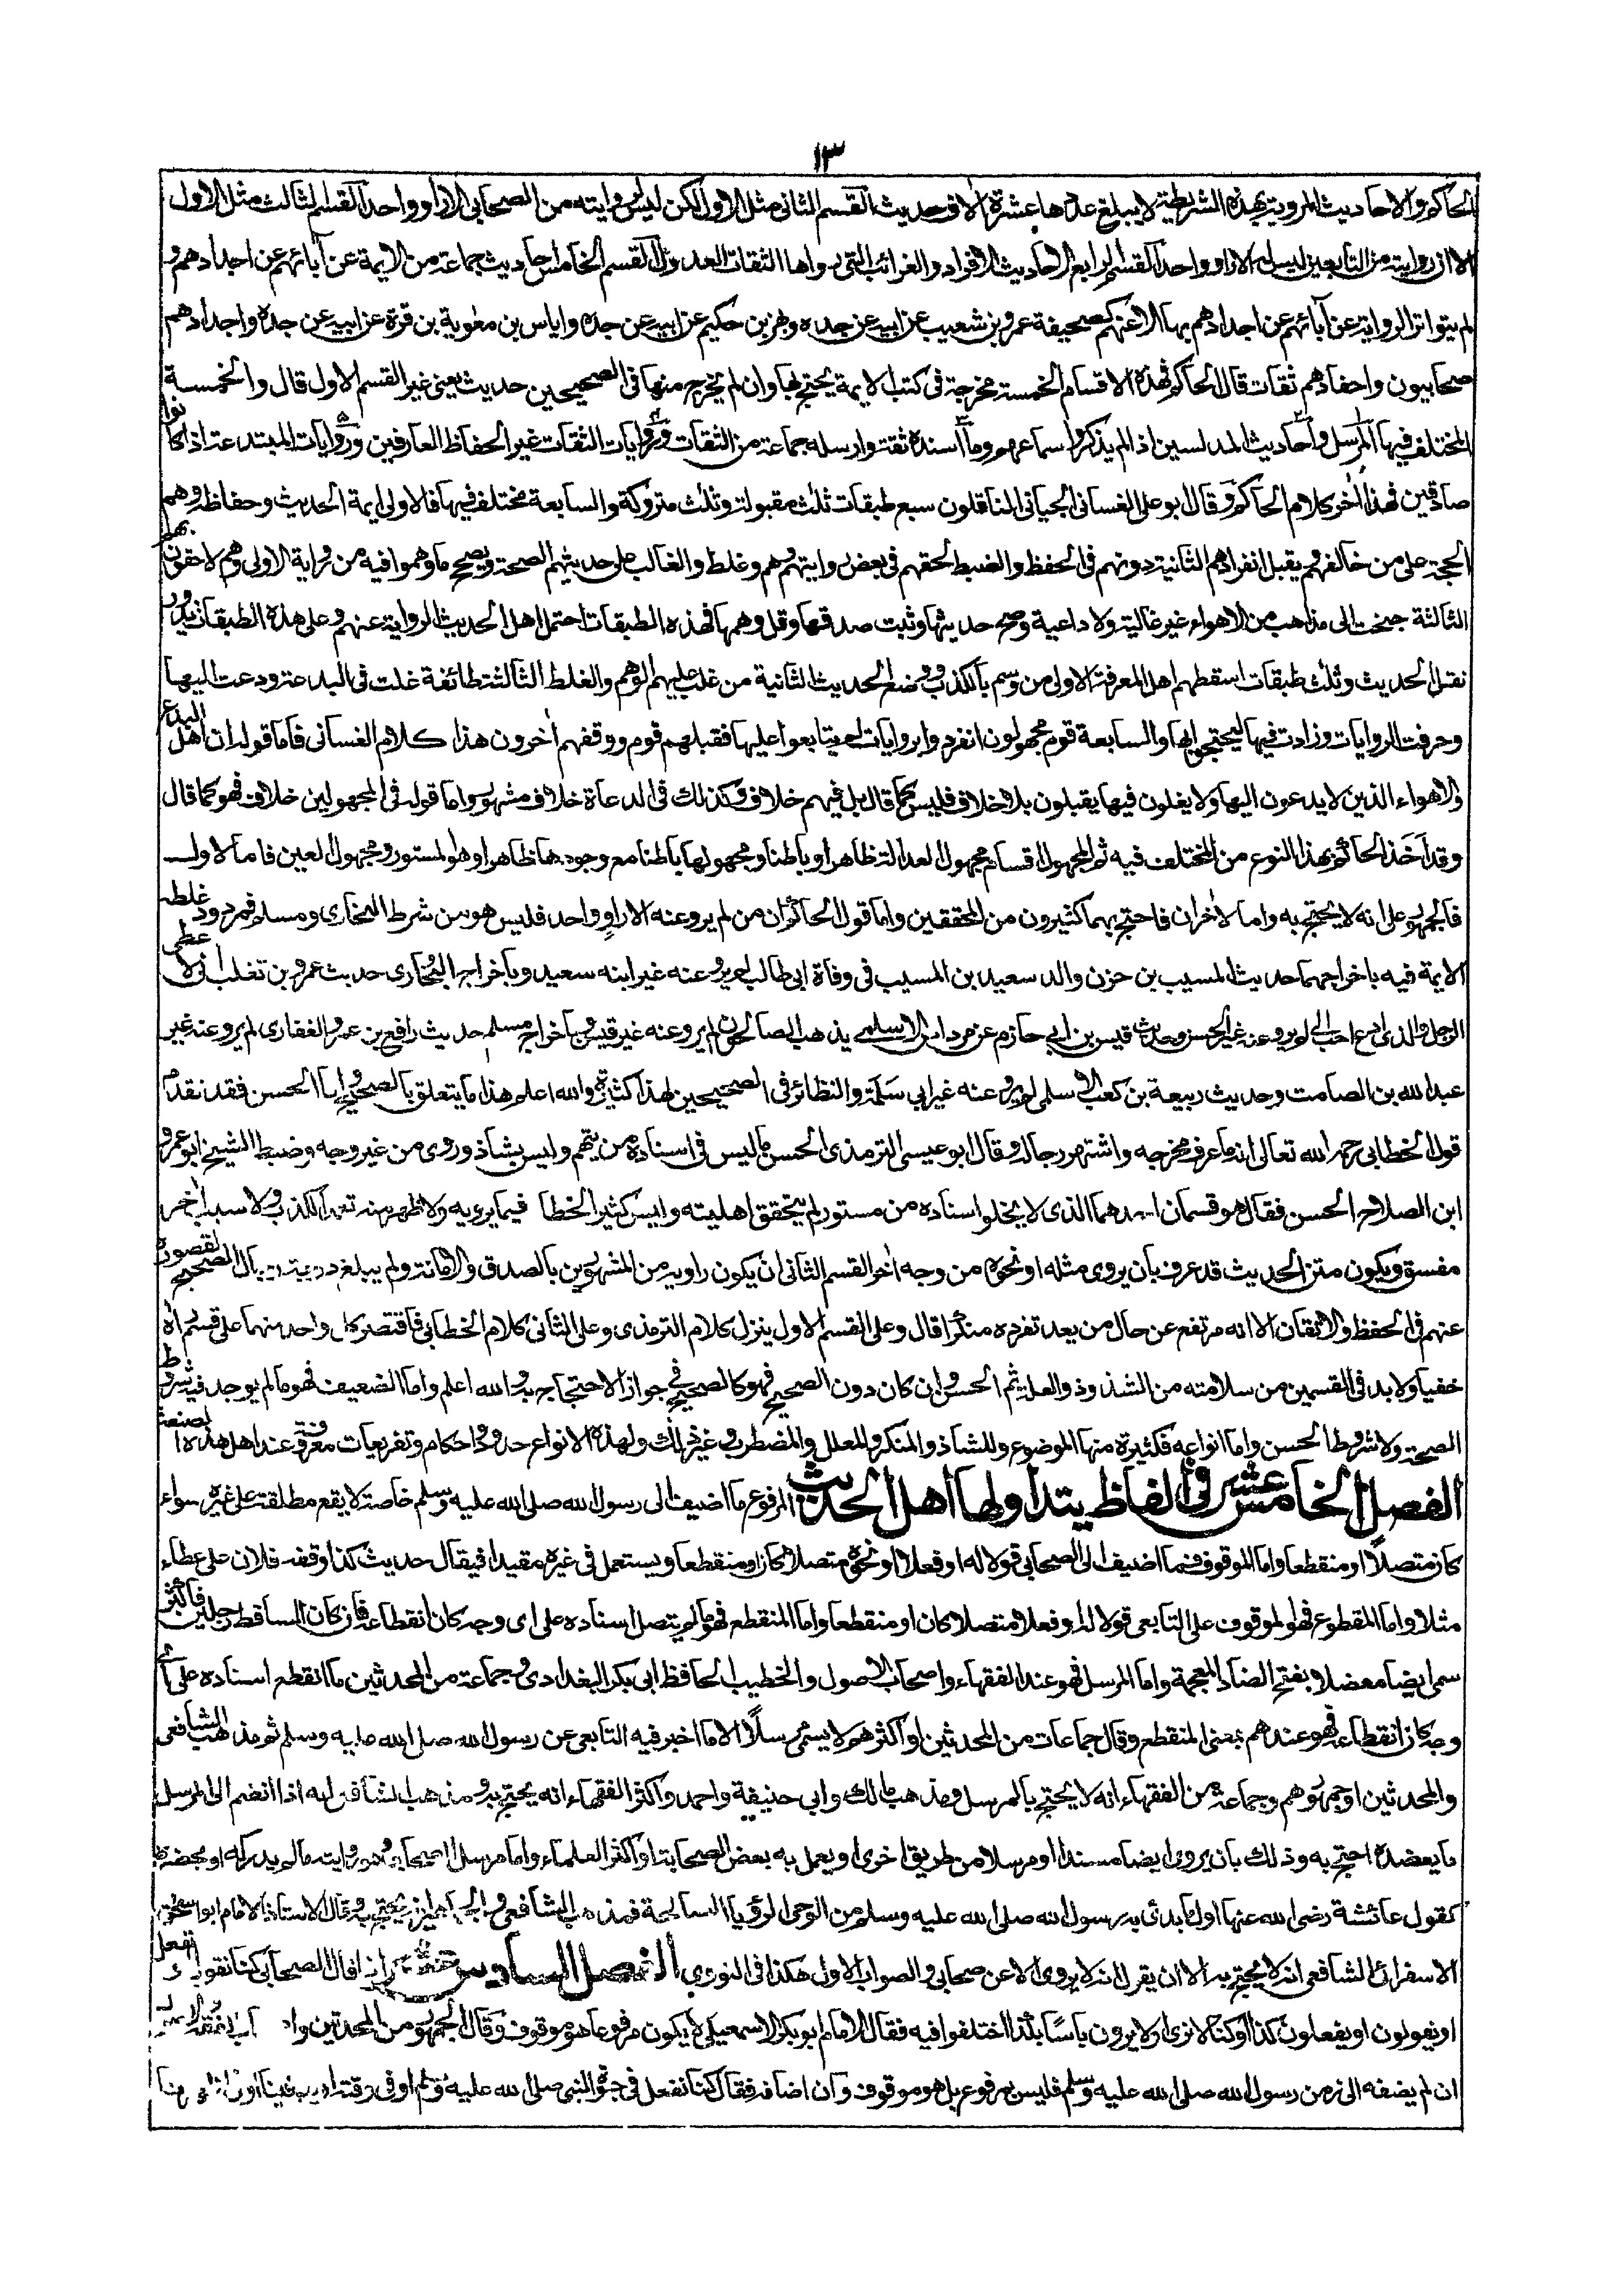 ١٣
الحاكم والاحاديث المروية بهذه الشريطة لا يبلغ عددها عشرة الاف حديث القسم الثانى مثل الاول لكن ليس لروايته من الصحابى الا راو واحد القسم الثالث مثل الاول
الا ان روايته من التابعين ليس له الا راو واحد القسم الرابع الاحاديث الافراد والغرائب التى رواها الثقات العدول القسم الخامس احاديث جماعة من الايمة عن آبائهم عن اجدادهم و
لم يتواتر الرواية عن آبائهم عن اجدادهم بها الا عنهم كصحيفة عمرو بن شعيب عن ابيه عن جده وبهز بن حكيم عن ابيه عن جده واياس بن معوية بن قرة عن ابيه عن جده واجدادهم
صحابيون واحفادهم ثقات قال الحاكم فهذه الاقسام الخمسة مخرجة فى كتب الايمة يحتج بها وان لم يخرج منها فى الصحيحين حديث يعنى غير القسم الاول قال والخمسة
المختلف فيها المرسل واحاديث المدلسين اذا لم يذكروا سماعهم وما اسنده ثقة وارسله جماعة من الثقات وروايات الثقات غير الحفاظ العارفين وروايات المبتدعة اذا كانوا
صادقين فهذا آخر كلام الحاكم وقال ابو على الغسانى الجيانى الناقلون سبع طبقات ثلث مقبولة وثلث متروكة والسابعة مختلف فيها فالاولى ايمة الحديث وحفاظه وهم
الحجة على من خالفهم ويقبل انفرادهم الثانية دونهم فى الحفظ والضبط لحقهم فى بعض روايتهم وهم وغلط والغالب على حديثهم الصحة ويصحح ما وهموا فيه من رواية الاولى وهم لاحقون بهم
الثالثة جنحت الى مذاهب من الاهواء غير غالية ولا داعية وصح حديثها وثبت صدقها وقل وهمها فهذه الطبقات احتمل اهل الحديث الرواية عنهم وعلى هذه الطبقات يدور
نقل الحديث وثلث طبقات اسقطهم اهل المعرفة الاولى من وسم بالكذب ووضع الحديث الثانية من غلب عليهم الوهم والغلط الثالثة طائفة غلت فى البدعة ودعت اليها
وحرفت الروايات وزادت فيها ليحتجوا بها والسابعة قوم مجهولون انفردوا بروايات لم يتابعوا عليها فقبلهم قوم ووقفهم آخرون هذا كلام الغسانى فاما قوله ان اهل البدع
والاهواء الذين لا يدعون اليها ولا يغلون فيها يقبلون بلا خلاف فليس كما قال بل فيهم خلاف وكذلك فى الدعاة خلاف مشهور واما قوله فى المجهولين خلاف فهو كما قال
وقد اخذ الحاكم بهذا النوع من المختلف فيه ثم المجهول اقسام مجهول العدالة ظاهرا وباطنا ومجهولها باطنا مع وجودها ظاهرا وهو المستور ومجهول العين فاما الاول
فالجمهور على انه لا يحتج به واما الآخران فاحتج بهما كثيرون من المحققين واما قول الحاكم ان من لم يرو عنه الا راو واحد فليس هو من شرط البخارى ومسلم فمردود غلطه
الايمة فيه باخراجهما حديث المسيب بن حزن والد سعيد بن المسيب فى وفاة ابى طالب لم يرو عنه غير ابنه سعيد وباخراجه البخارى حديث عمرو بن تغلب انى لاعطى
الرجل والذى ادع احب الى لم يرو عنه غير الحسن وحديث قيس بن ابى حازم عن مرداس الاسلمى يذهب الصالحون لم يرو عنه غير قيس وباخراج مسلم حديث رافع بن عمرو الغفارى لم يرو عنه غير
عبد الله بن الصامت وحديث ربيعة بن كعب الاسلمى لم يرو عنه غير ابى سلمة والنظائر فى الصحيحين لهذا كثيرة والله اعلم هذا ما يتعلق بالصحيح واما الحسن فقد تقدم
قول الخطابى رحمه الله تعالى انه ما عرف مخرجه واشتهر رجاله وقال ابو عيسى الترمذى الحسن ما ليس فى اسناده من يتهم وليس بشاذ وروى من غير وجه وضبط الشيخ ابو عمرو
ابن الصلاح الحسن فقال هو قسمان احدهما الذى لا يخلو اسناده من مستور لم يتحقق اهليته وليس كثير الخطا فيما يرويه ولا ظهر منه تعمد الكذب ولا سبب آخر
مفسق ويكون متن الحديث قد عرف بان يروى مثله او نحوه من وجه آخر القسم الثانى ان يكون راويه من المشهورين بالصدق والامانة ولم يبلغ درجة رجال الصحيح لقصوره
عنهم فى الحفظ والاتقان الا انه مرتفع عن حال من يعد تفرده منكرا قال وعلى القسم الاول ينزل كلام الترمذى وعلى الثانى كلام الخطابى فاقتصر كل واحد منهما على قسم رآه
خفيا ولا بد فى القسمين من سلامته من الشذوذ والعلة ثم الحسن وان كان دون الصحيح فهو كالصحيح فى جواز الاحتجاج به والله اعلم واما الضعيف فهو ما لم يوجد فيه شروط
الصحة ولا شروط الحسن واما انواعه فكثيرة منها الموضوع والشاذ والمنكر والمعلل والمضطرب وغير ذلك ولهذه الانواع حدود واحكام وتفريعات معروفة عند اهل هذه الصنعة
الفصل الخامس عشر فى الفاظ يتداولها اهل الحديث المرفوع ما اضيف الى رسول الله صلى الله عليه وسلم خاصة لا يقع مطلقة على غيره سواء
كان متصلا او منقطعا واما الموقوف فما اضيف الى الصحابى قولا له او فعلا او نحوه متصلا كان او منقطعا ويستعمل فى غيره مقيدا فيقال حديث كذا وقفه فلان على عطاء
مثلا واما المقطوع فهو الموقوف على التابعى قولا له او فعلا متصلا كان او منقطعا واما المنقطع فهو ما لم يتصل اسناده على اى وجه كان انقطاعه فان كان الساقط رجلين فاكثر
سمى ايضا معضلا بفتح الضاد المعجمة واما المرسل فهو عند الفقهاء واصحاب الاصول والخطيب الحافظ ابى بكر البغدادى وجماعة من المحدثين ما انقطع اسناده على اى
وجه كان انقطاعه فهو عندهم بمعنى المنقطع وقال جماعات من المحدثين او اكثرهم لا يسمى مرسلا الا ما اخبر فيه التابعى عن رسول الله صلى الله عليه وسلم ثم مذهب الشافعى
والمحدثين او جمهورهم وجماعة من الفقهاء انه لا يحتج بالمرسل ومذهب مالك وابى حنيفة واحمد واكثر الفقهاء انه يحتج به ومذهب الشافعى انه اذا انضم الى المرسل
ما يعضده احتج به وذلك بان يروى ايضا مسندا او مرسلا من طريق اخرى او يعمل به بعض الصحابة او اكثر العلماء واما مرسل الصحابى وهو روايته ما لم يدركه او يحضره
كقول عائشة رضى الله عنها اول ما بدئ به رسول الله صلى الله عليه وسلم من الوحى الرؤيا الصالحة فمذهب الشافعى والجماهير انه يحتج به وقال الاستاذ الامام ابو اسحق
الاسفرائنى الشافعى انه لا يحتج به الا ان يقول انه لا يروى الا عن صحابى والصواب الاول هكذا فى النووى الفصل السادس عشر اذا قال الصحابى كنا نقول او نفعل
او يقولون او يفعلون كذا او كنا لا نرى او لا يرون باسا بكذا اختلفوا فيه فقال الامام ابو بكر الاسمعيلى لا يكون مرفوعا هو موقوف وقال الجمهور من المحدثين
ان لم يضفه الى زمن رسول الله صلى الله عليه وسلم فليس بمرفوع بل هو موقوف وان اضافه فقال كنا نفعل فى حيوة النبى صلى الله عليه وسلم او فى وقته او